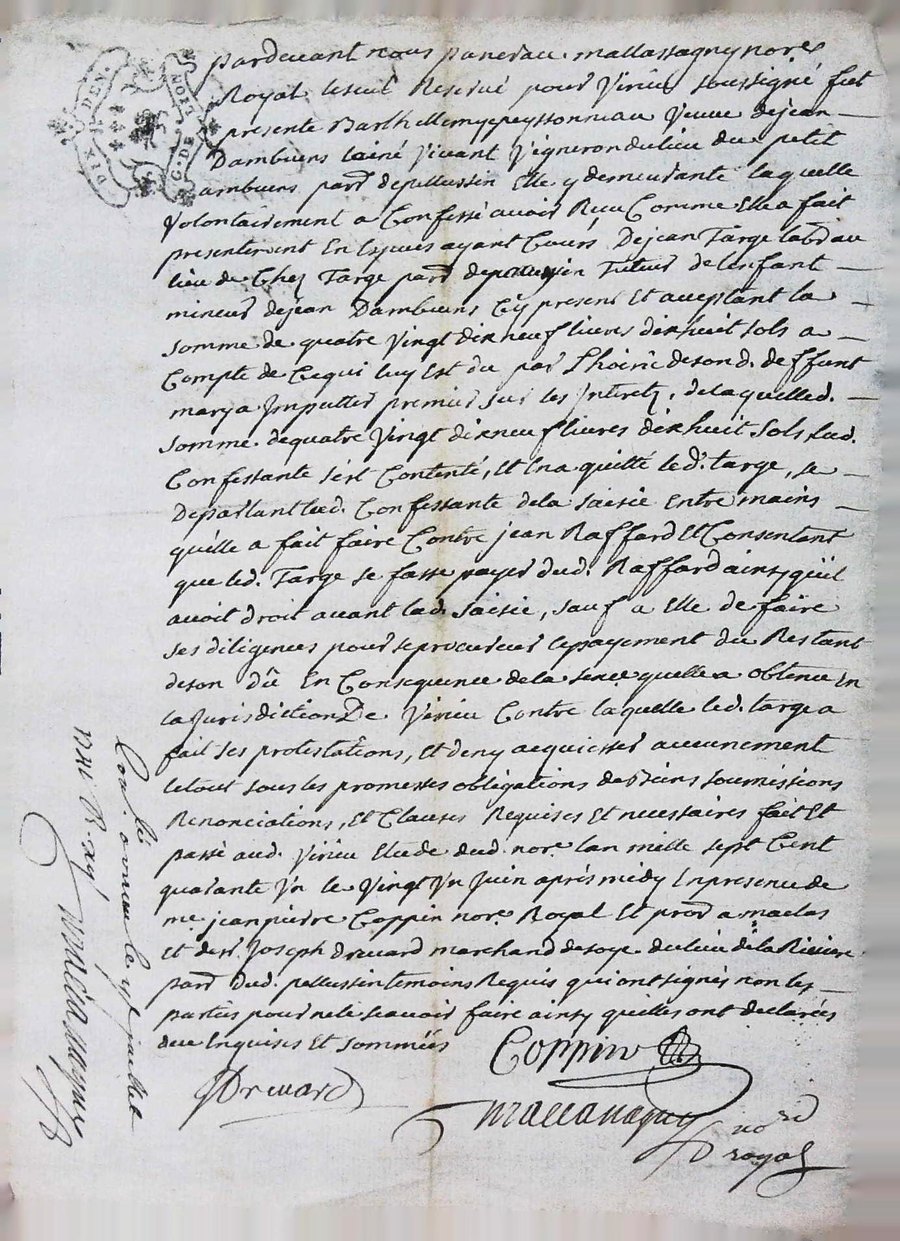 G. DE LION
DIX DEN.
pardevant nous panerau mallassagny nore
Royal le seul Reservé pour Virieu soussigné fut
presente Barthellemye peyssonneau Veuve de jean
Dambuens lainé vivant Vigneron du lieu du petit
ambuens parr depellussin Elle y demeurante laquelle
Volontairement a Confessé avoir Reçu Comme Elle a fait
presentement En Especes ayant Cours De jean Targe labr au
lieu de Chez Targe parr depellussin Tuteur de lenfant
mineur dejean Dambuens Cy present Et acceptant la
somme de quatre Vingt dixneuf livres dixhuit sols a
Compte de Cequi luy Est du par Lhoirie deson d. deffunt
mary a Imputter premier sur les Interetz, delaquelled.
somme dequatre Vingt dixneuf livres dixhuit sols lad.
Confessante sest Contenté, et En a quitté led. targe, se
Departant lad. Confessante dela saisie Entre mains
quelle a fait faire Contre jean Raffard Et Consentant
que led. Targe se fasse payer dud. Raffard ainsy quil
avoit droit avant lad. saisie, sauf a Elle de faire
ses diligences pour seprocurer lepayement du Restant
deson dû En Consequence dela sence quelle a obtenue En
la jurisdiction De Virieu Contre laquelle led. targe a
fait ses protestations, et deny acquiesser aucunement
letout sous les promesses obligations de biens soumissions
Renonciations, Et Clauses Requises Et necessaires fait Et
passé aud. Virieu Etude dud. nore lan mille sept Cent
quarante Un le Vingt Un juin après midy En presence de
me jeanpierre Coppin nore Royal Et procr a maclas
Et desr. Joseph Drevard marchand desoye dulieu dela Riviere
parr Dud. pellussin temoins Requis qui ont signés non les
parties pour nele scavoir faire ainsy quelles ont declarées
de ce Enquises Et sommées
Coppin
JDrevard
Mallassagny nore
royal
Conlé a le 4e juillet
1741 R. xij s
Mallassagny